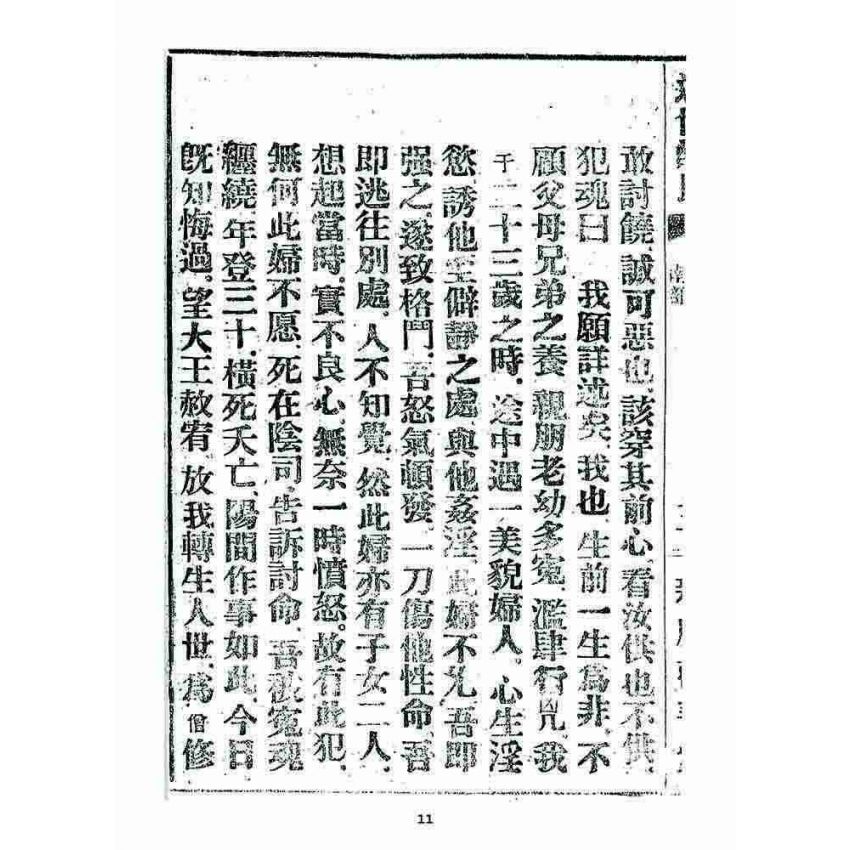 敢討饒、誠可惡也、該穿其前心、看汝供也不供、
犯魂曰 我願詳述矣、我也、生前一生為非、不
顧父母兄弟之養、親朋老幼多寃、濫肆行兇、我
于二十三歲之時、途中遇一美貌婦人、心生淫
慾、誘他至僻靜之處、與他姦淫、此婦不允、吾即
强之、遂致格鬥、吾怒氣頓發、一刀傷他性命、吾
即逃往別處、人不知覺、然此婦亦有子女二人、
想起當時、實不良心、無奈一時憤怒。故有此犯、
無何此婦不愿、死在陰司、告訴討命、吾被寃魂
纏繞、年登三十、橫死夭亡、陽間作事如此、今日
旣知悔過、望大王赦宥、放我轉生人世、為僧修
11